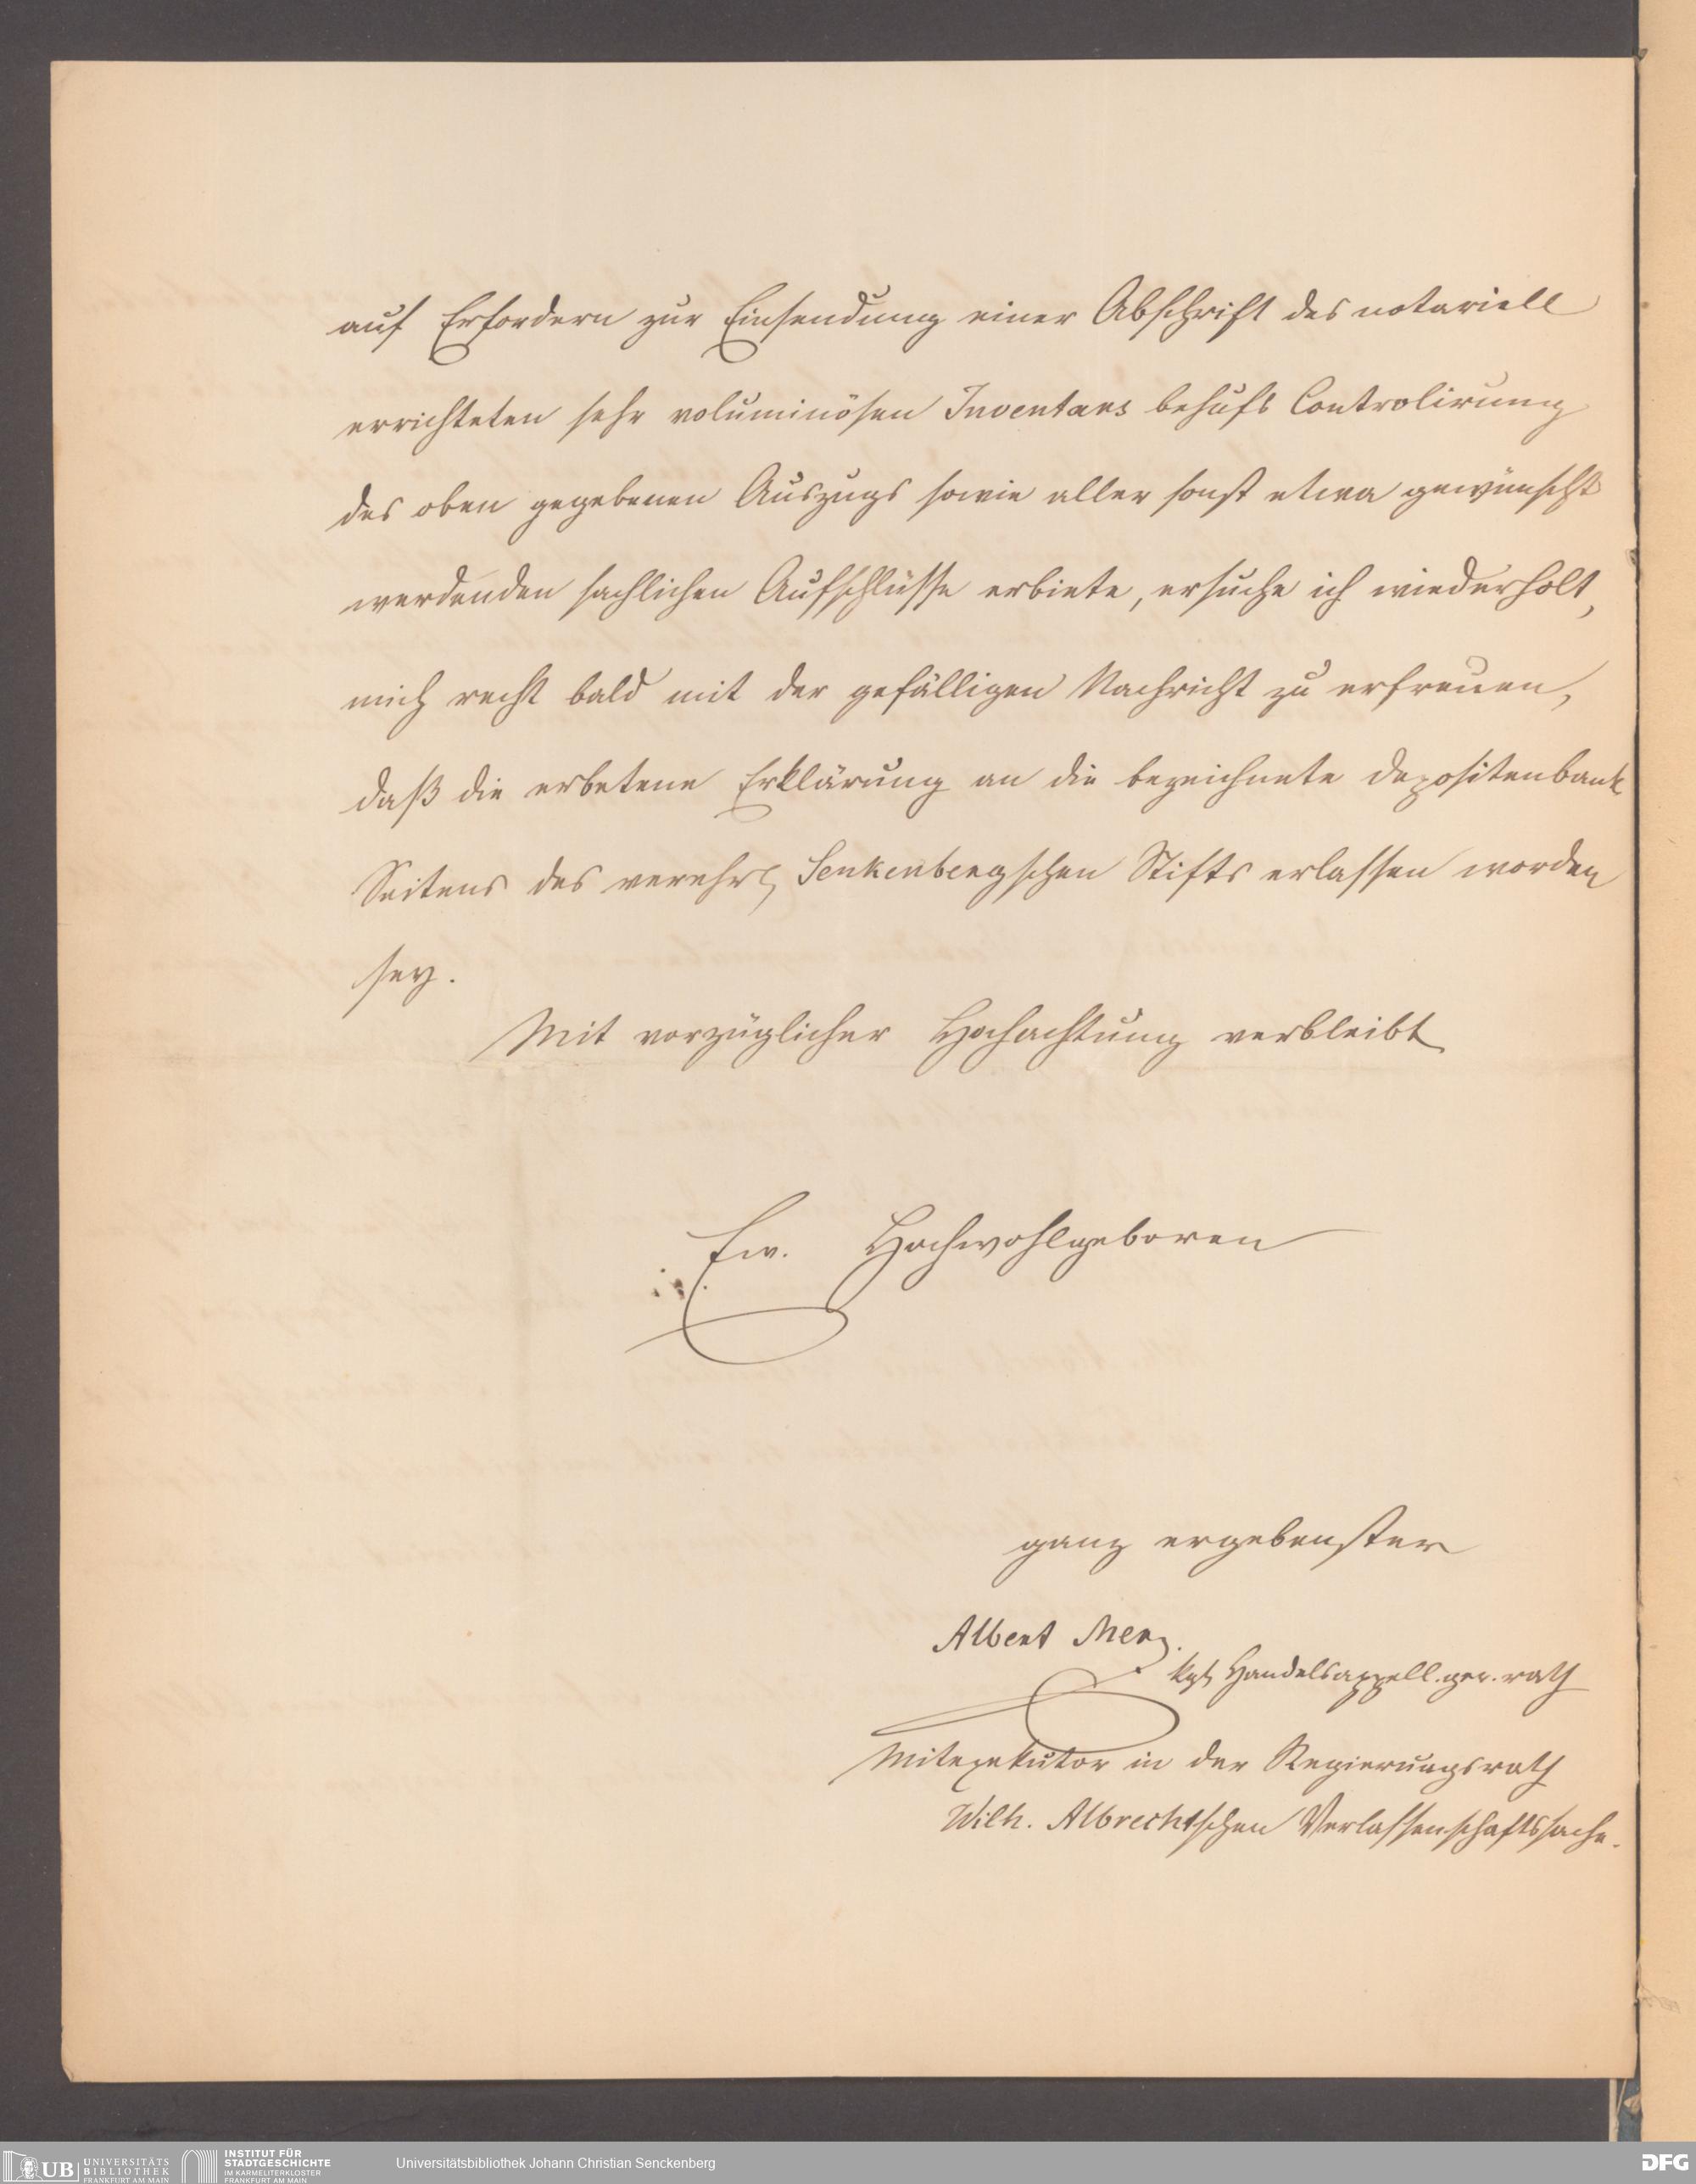 auf Erfordern zur Einsendung einer Abschrift des notariell
errichteten sehr voluminösen Inventars behufs Controlirung
des oben gegebenen Auszugs sowie aller sonst etwa gewünscht
werdenden sachlichen Aufschlüsse erbiete, ersuche ich wiederholt,
mich recht bald mit der gefälligen Nachricht zu erfreuen,
daß die erbetene Erklärung an die bezeichnete Depositenbank
Seitens des verehrl. Senkenbergschen Stifts erlassen worden
sey.
Mit vorzüglicher Hochachtung verbleibt
Ew. Hochwohlgeboren
ganz ergebenster
Albert Merz.
kgl. Handelsappell.ger.rath
Mitexekutor in der Regierungsrath
Wilh. Albrechtschen Verlassenschaftssache.
UB UNIVERSITÄTS
BIBLIOTHEK
FRANKFURT AM MAIN
INSTITUT FÜR
STADTGESCHICHTE
IM KARMELITERKLOSTER
FRANKFURT AM MAIN
Universitätsbibliothek Johann Christian Senckenberg
DFG